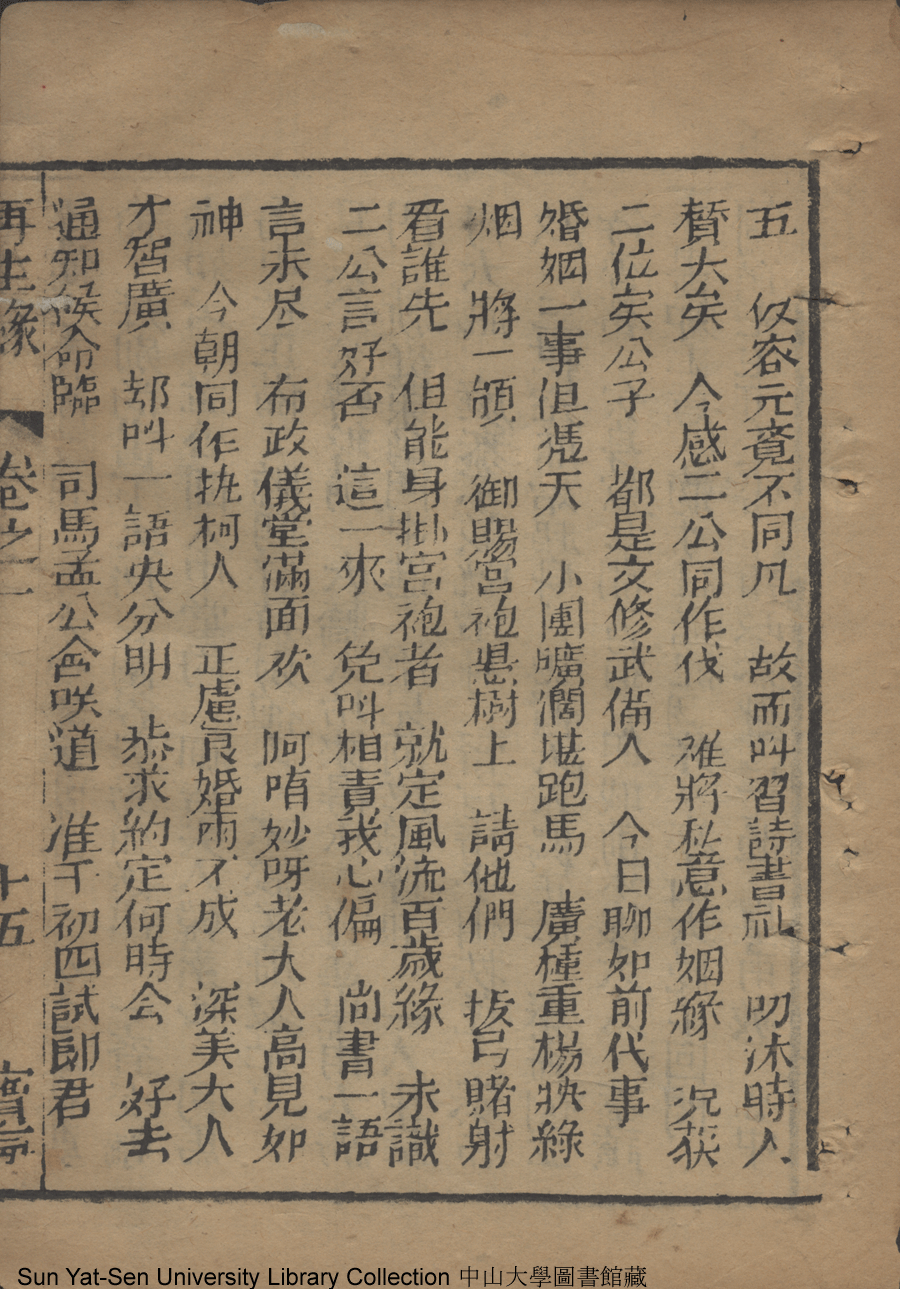 五 仪容元竟不同凡 故而叫習詩書礼 叨沐時人
賛大矣 今感二公同作伐 难將私意作姻緣 况荻
二位寅公子 都是文修武備人 今日聊如前代事
婚姻一事但憑天 小園曠濶堪跑馬 廣種垂楊映綠
烟 將一領 御賜宮袍懸樹上 請他們 扳弓賭射
看誰先 但能身掛宮袍者 就定風流百歲緣 未識
二公言好否 這一來 免叫相責我心偏 尚書一語
言未尽 布政儀堂滿面欢 阿唷妙呀老大人高見如
神 今朝同作执柯人 正慮良婚两不成 深美大人
才智廣 却叫一語央分明 恭求約定何時会 好去
通知候命臨 司馬孟公含咲道 准于初四試郎君
再生緣 卷之一 十五 寳京
Sun Yat-Sen University Library Collection 中山大學圖書館藏